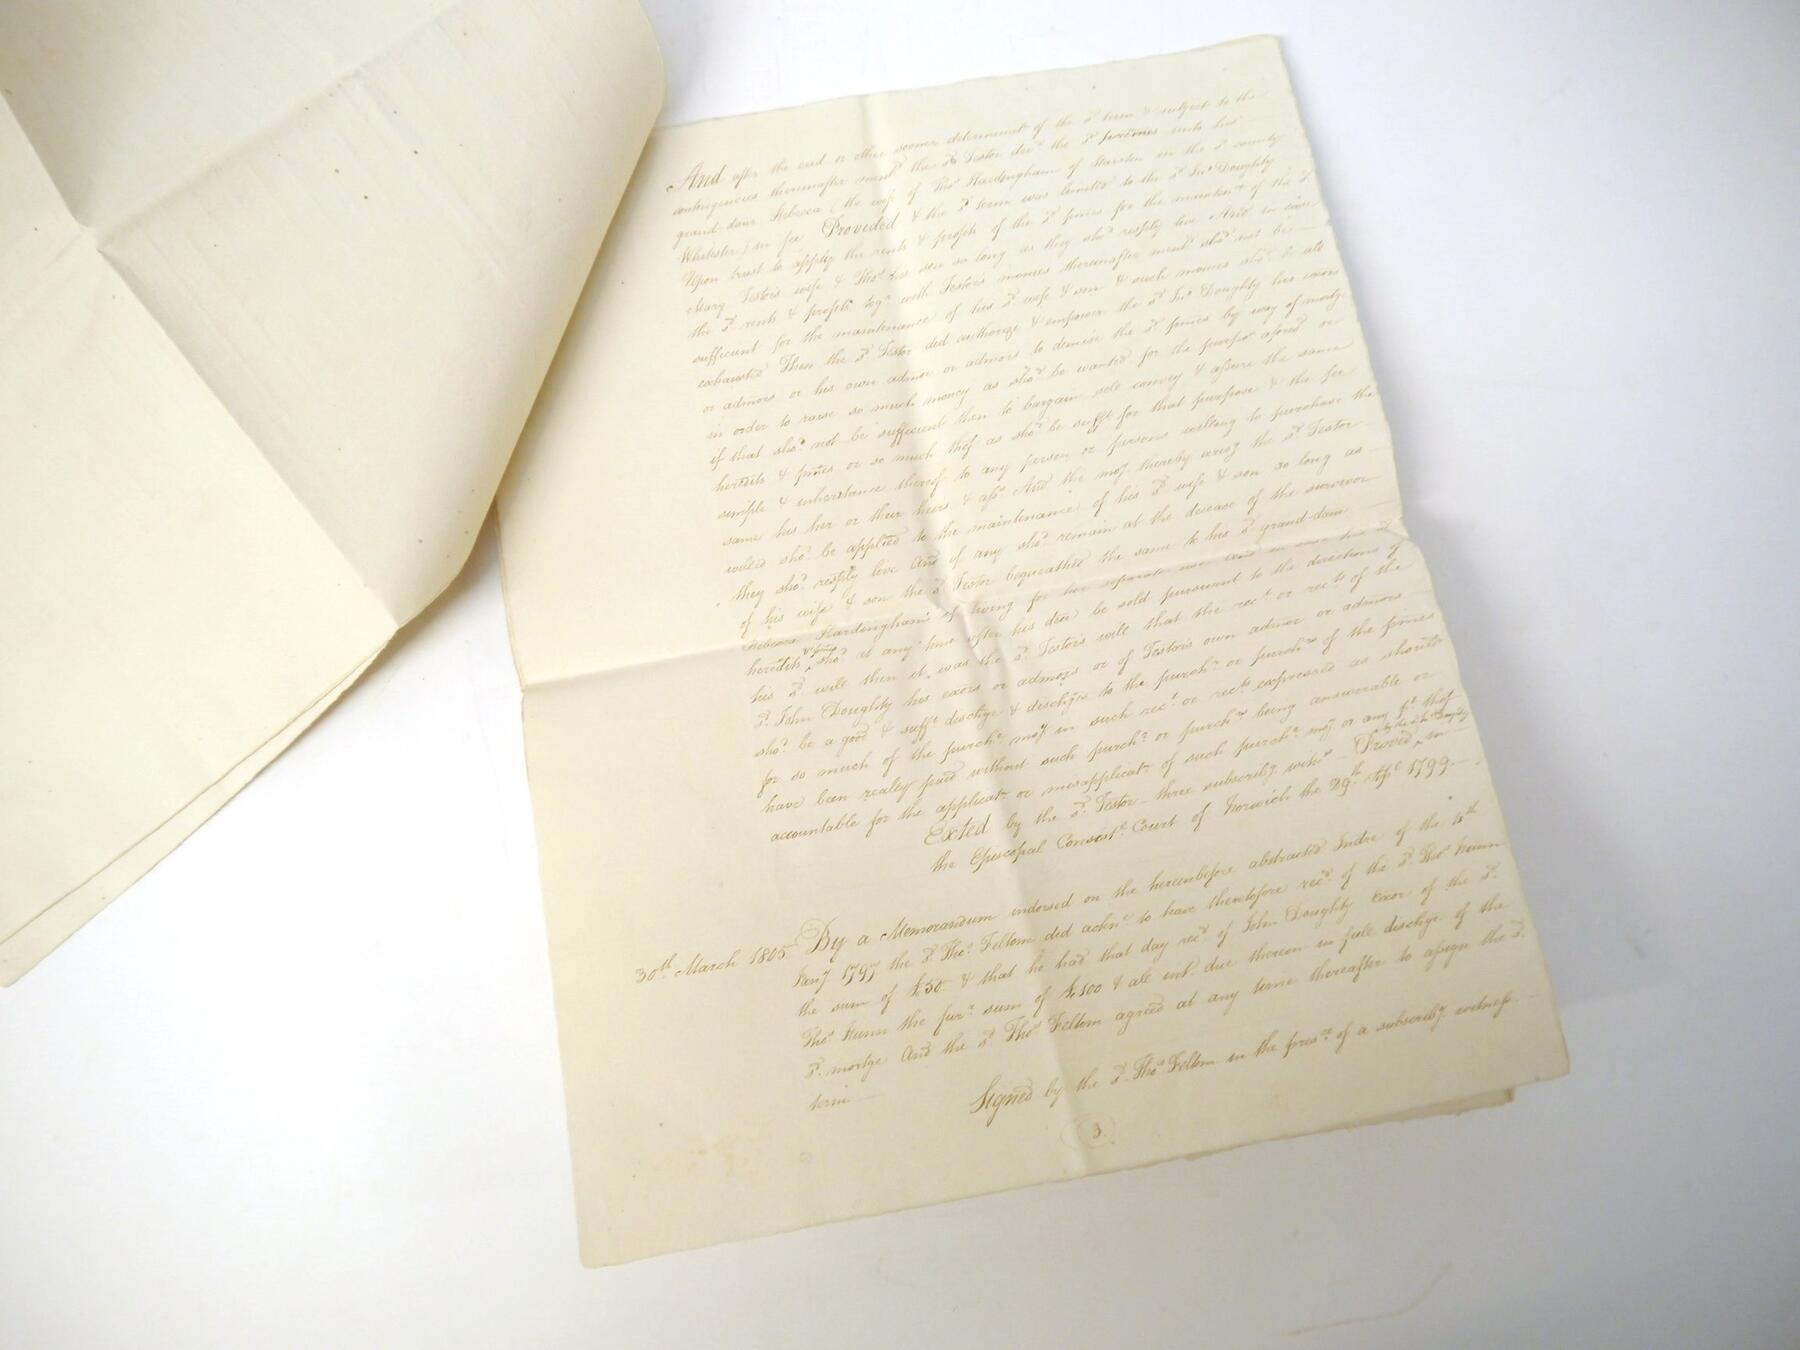 And after the end or other sooner determinat.n of the s.d term & subject to the
contingencies thereinafter ment.d the s.d Testor dev.d the s.d premes unto his
grand-daur Rebecca (the wife of Tho.s Hardingham of Harston in the s.d county
Whitster) in fee Provided & the s.d term was limited to the s.d Jn.o Doughty
Upon trust to apply the rents & profits of the s.d pmes for the mainten.ce of the s.d
Mary Testor's wife & Tho.s his son so long as they sho.d resply live And in case
the s.d rents & profits tog.r with Testor's monies thereinafter ment.d sho.d not be
sufficient for the maintenance of his s.d wife & son & such monies sho.d be all
exhausted Then the s.d Testor did authorize & empower the s.d Jn.o Doughty his exors
or admors or his own admor or admors to demise the s.d pmes by way of mortge
in order to raise so much money as sho.d be wanted for the purpos afores.d or
if that sho.d not be sufficient then to bargain sell convey & assure the same
heredits & pmes or so much thof as sho.d be suff.t for that purpose & the fee
simple & inheritance thereof to any person or persons willing to purchase the
same his her or their heirs & ass.s And the moy thereby arisg the s.d Testor
willed sho.d be applied to the maintenance of his s.d wife & son so long as
they sho.d resply live And if any sho.d remain at the decease of the survivor
of his wife & son the s.d Testor bequeathed the same to his s.d grand-daur
Rebecca Hardingham if living for her separate use And in case his s.d
heredits & pmes sho.d at any time after his dece be sold pursuant to the directions of
his s.d will then it was the s.d Testor's will that the rec.t or rec.ts of the
s.d John Doughty his exors or admors or of Testor's own admor or admors
sho.d be a good & suff.t dischge & dischges to the purch.r or purch.rs of the pmes
for so much of the purch.e moy in such rec.t or rec.ts expressed as should
have been really paid without such purch.r or purch.rs being answerable or
accountable for the applicat.n or misapplicat.n of such purch.e moy or any p.t thof
Exted by the s.d Testor three subscribg witn.s Proved by the s.d Jn.o Doughty in
the Episcopal Consist.l Court of Norwich the 29.th Ap.l 1799.
30.th March 1805 By a Memorandum endorsed on the hereinbefore abstracted Indre of the 4.th
Jan.y 1797 the s.d Tho.s Feltom did ackn.e to have theretofore rec.d of the s.d Tho.s Nunn
the sum of £50 & that he had that day rec.d of John Doughty Exor of the s.d
Tho.s Nunn the fur.r sum of £100 & all int. due thereon in full dischge of the
s.d mortge And the s.d Tho.s Feltom agreed at any time thereafter to assign the s.d
term
Signed by the s.d Tho.s Feltom in the pres.ce of a subscribg witness
3.